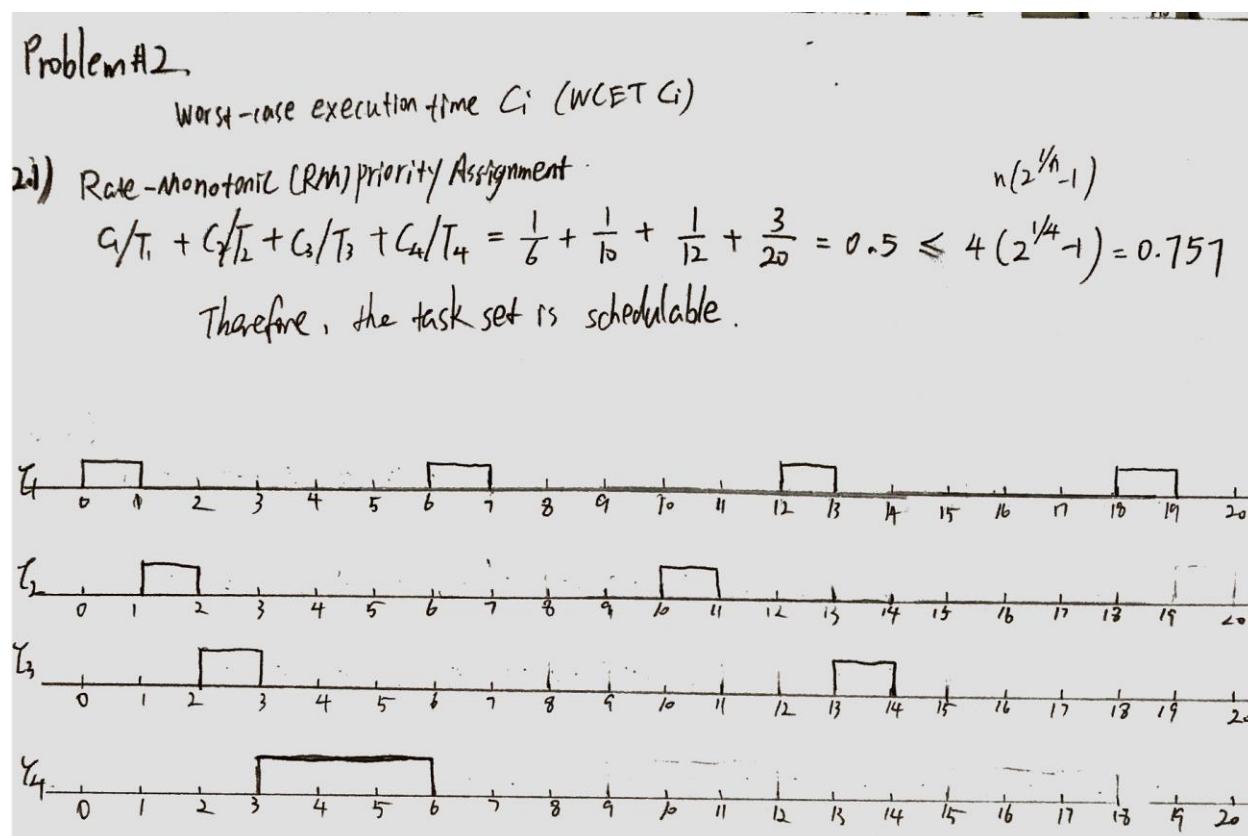 Problem #2.
Worst-case execution time Ci (WCET Ci)
2.1) Rate-Monotonic (RM) priority Assignment.
n(2^1/n-1)
C1/T1 + C2/T2 + C3/T3 + C4/T4 = 1/6 + 1/10 + 1/12 + 3/20 = 0.5 ≤ 4(2^1/4-1) = 0.757
Therefore, the task set is schedulable.
τ1 0 1 2 3 4 5 6 7 8 9 10 11 12 13 14 15 16 17 18 19 20
τ2 0 1 2 3 4 5 6 7 8 9 10 11 12 13 14 15 16 17 18 19 20
τ3 0 1 2 3 4 5 6 7 8 9 10 11 12 13 14 15 16 17 18 19 20
τ4 0 1 2 3 4 5 6 7 8 9 10 11 12 13 14 15 16 17 18 19 20